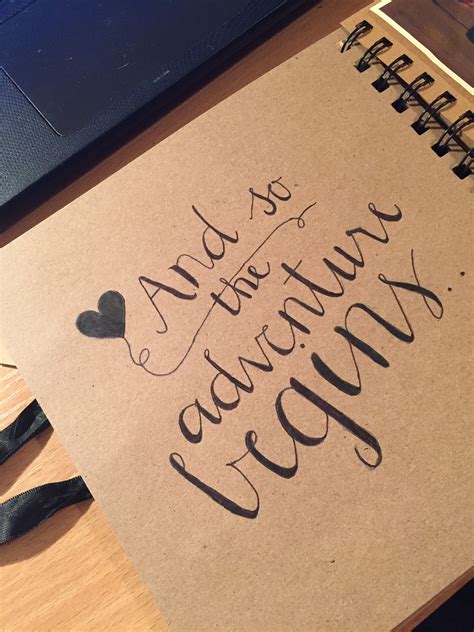 And so
the
adventure
begins...